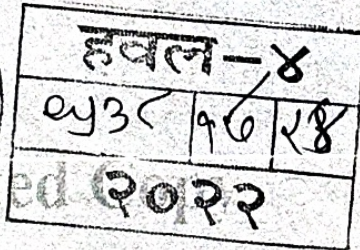 हवल-४
७५३८ १७ २४
२०२२